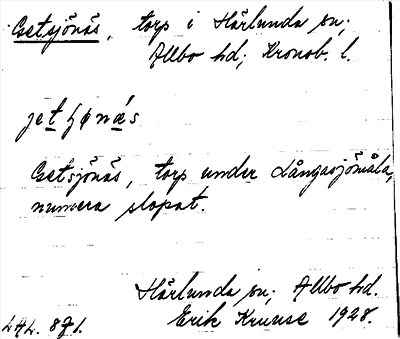 Getsjönäs, torp i Härlunda sn;
Allbo hd; Kronob. l.
jetʃønæs
Getsjönäs, torp under Långasjömåla,
numera slopat.
Härlunda sn; Allbo hd.
Erik Kruuse 1928.